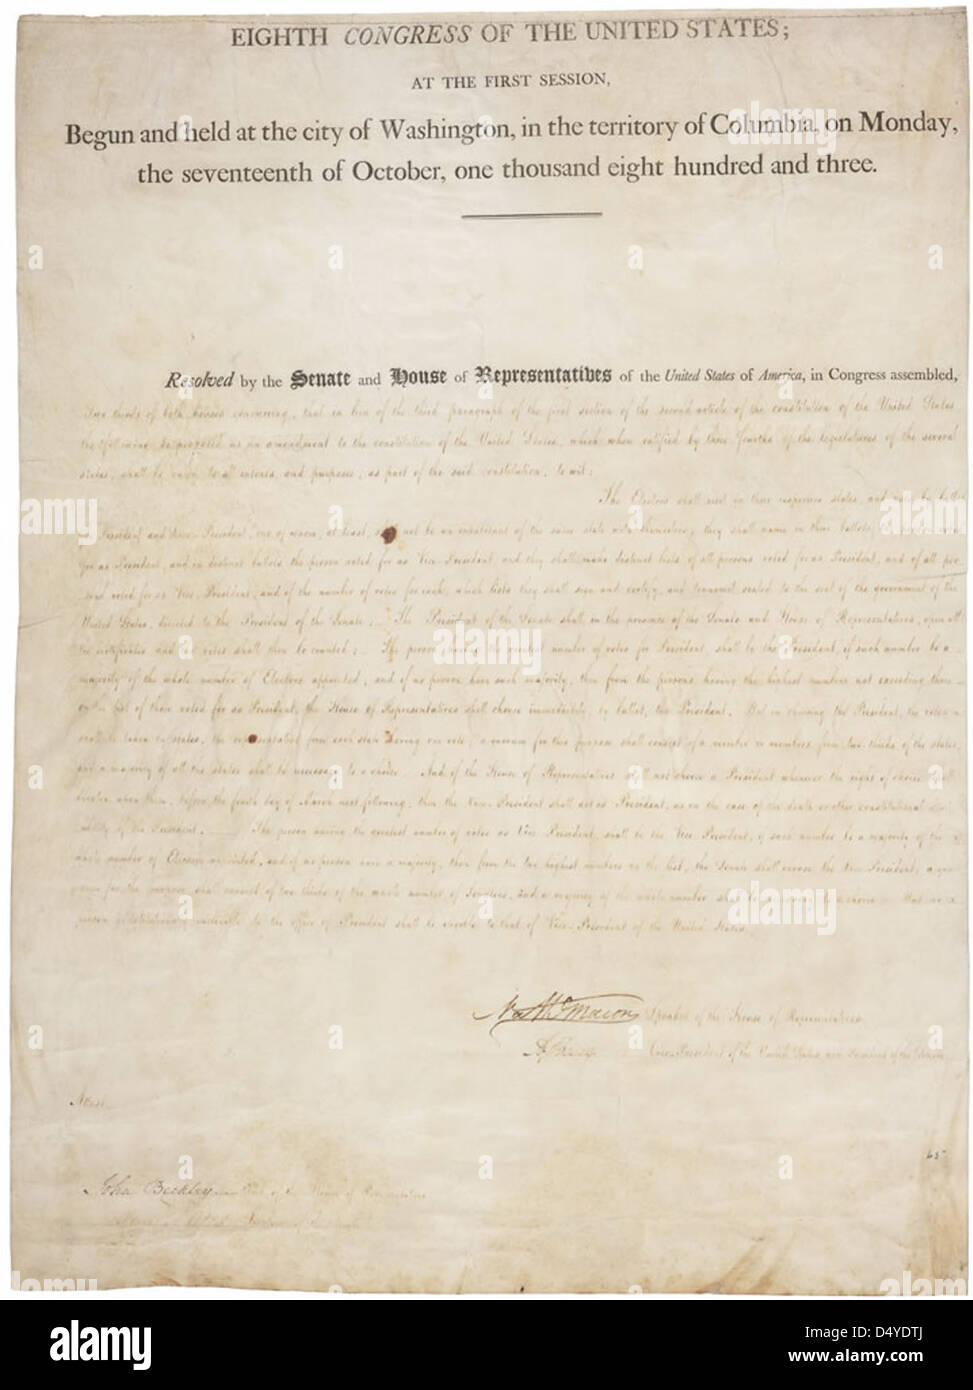 EIGHTH CONGRESS OF THE UNITED STATES;
AT THE FIRST SESSION,
Begun and held at the city of Washington, in the territory of Columbia, on Monday,
the seventeenth of October, one thousand eight hundred and three.
Resolved by the Senate and House of Representatives of the United States of America, in Congress assembled,
Two thirds of both houses concurring, that in lieu of the third paragraph of the first section of the second article of the constitution of the United States
the following be proposed as an amendment to the constitution of the United States, which when ratified by three fourths of the legislatures of the several
states, shall be valid to all intents and purposes, as part of the said constitution, to wit:
The Electors shall meet in their respective states, and vote by ballot
President and Vice-President, one of whom, at least, shall not be an inhabitant of the same state with themselves; they shall name in their ballots the person voted
for as President, and in distinct ballots the person voted for as Vice-President and they shall make distinct lists of all persons voted for as President, and of all per
sons voted for as Vice-President, and of the number of votes for each, which lists they shall sign and certify, and transmit sealed to the seat of the government of the
United States, directed to the President of the Senate; The President of the Senate shall in the presence of the Senate and House of Representatives, open all
the certificates and the votes shall then be counted; The person having the greatest number of votes for President, shall be the President, if such number be a
majority of the whole number of Electors appointed; and if no person have such majority, then from the persons having the highest numbers not exceeding three
on the list of those voted for as President, the House of Representatives shall choose immediately, by ballot, the President. But in choosing the President, the votes
shall be taken by states, the representation from each state having one vote; a quorum for this purpose shall consist of a member or members from two thirds of the states,
and a majority of all the states shall be necessary to a choice. And if the House of Representatives shall not choose a President whenever the right of choice shall
devolve upon them, before the fourth day of March next following, then the Vice-President shall act as President, as in the case of the death or other constitutional
of the President. The person having the greatest number of votes as Vice President, shall be the Vice President, if such number be a majority of the
whole number of Electors appointed, and if no person have a majority, then from the two highest numbers on the list, the Senate shall choose the Vice President; a quo
rum for the purpose shall consist of two thirds of the whole number of Senators, and a majority of the whole number shall be necessary to a choice. But no
person constitutionally ineligible to the office of President shall be eligible to that of Vice-President of the United States.
Nath Macon Speaker of the House of Representatives
Vice-President of the United States and President of the Senate
Attest
John Beckley Clerk of the House of Representatives
65
alamy
Image ID: D4YDTJ
www.alamy.com